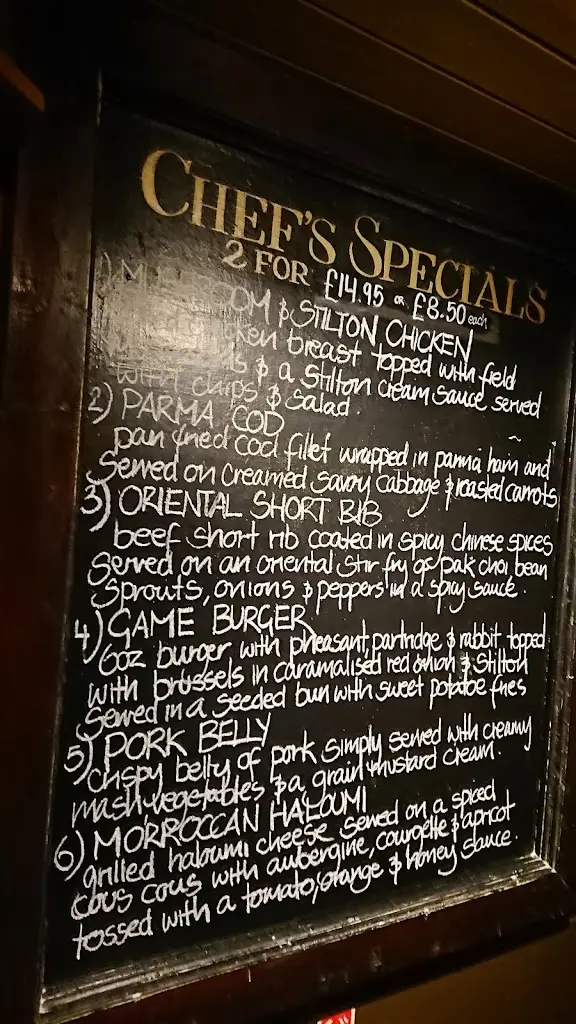 CHEF'S SPECIALS
2 FOR £14.95 OR £8.50 each
1) & STILTON CHICKEN
breast topped with field
& a Stilton cream sauce served
with chips & Salad.
2) PARMA COD
pan fried cod fillet wrapped in parma ham and
Served on creamed savoy cabbage & roasted carrots
3) ORIENTAL SHORT RIB
beef short rib coated in spicy chinese spices
Served on an oriental stir fry of pak choi, bean
Sprouts, onions & peppers in a spicy sauce.
4) GAME BURGER
6oz burger with pheasant, partridge & rabbit, topped
with brussels in caramalised red onion & Stilton
Served in a seeded bun with sweet potatoe fries
5) PORK BELLY
crispy belly of pork simply served with creamy
mash, vegetables & a grain mustard cream.
6) MORROCCAN HALOUMI
grilled haloumi cheese served on a spiced
cous cous with aubergine, courgette & apricot
tossed with a tomato, orange & honey sauce.